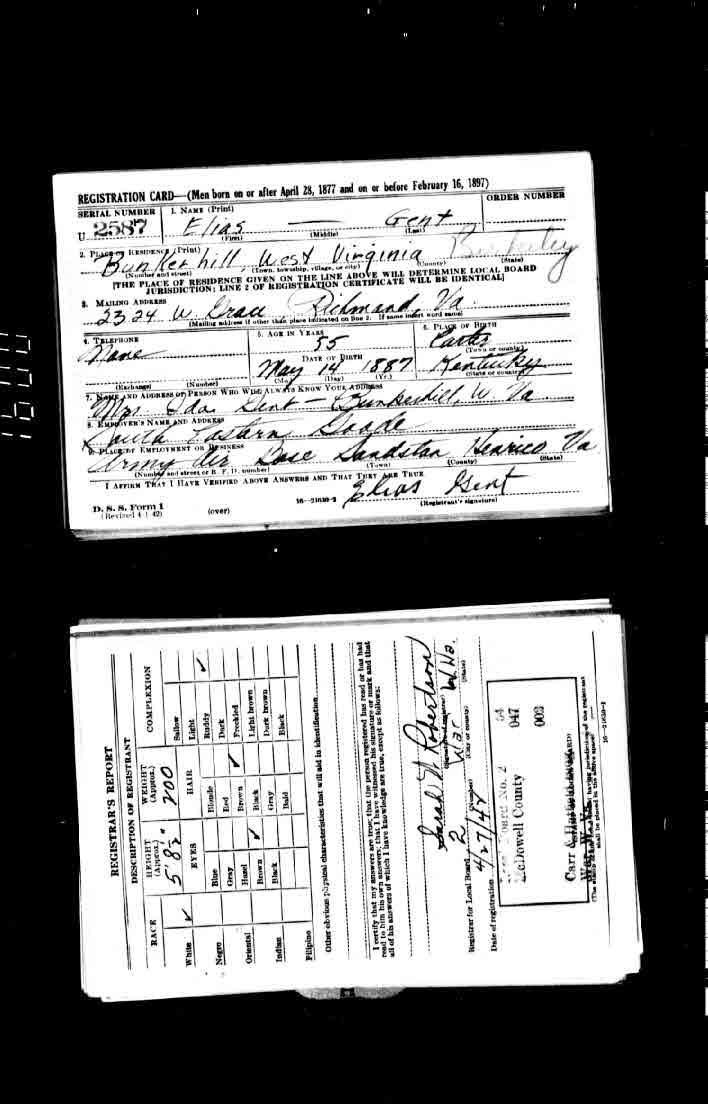 REGISTRATION CARD—(Men born on or after April 28, 1877 and on or before February 16, 1897)
SERIAL NUMBER
1. NAME (Print)
ORDER NUMBER
U 2587
Elias — Gent
(First) (Middle) (Last)
2. PLACE OF RESIDENCE (Print)
Bunkerhill, West Virginia
(Number and street) (Town, township, village, or city) (County) (State)
[THE PLACE OF RESIDENCE GIVEN ON THE LINE ABOVE WILL DETERMINE LOCAL BOARD
JURISDICTION; LINE 2 OF REGISTRATION CERTIFICATE WILL BE IDENTICAL]
3. MAILING ADDRESS
2324 W. Grace, Richmond, Va
(Mailing address if other than place indicated on line 2. If same insert word same)
4. TELEPHONE
5. AGE IN YEARS
6. PLACE OF BIRTH
None
55
Carter
(Town or county)
DATE OF BIRTH
May 14 1887
Kentucky
(Exchange) (Number)
(Mo.) (Day) (Yr.)
(State or country)
7. NAME AND ADDRESS OF PERSON WHO WILL ALWAYS KNOW YOUR ADDRESS
Mrs. Ida Gent — Bunkerhill, W. Va
8. EMPLOYER'S NAME AND ADDRESS
South Eastern Goode
9. PLACE OF EMPLOYMENT OR BUSINESS
Army Air Base Sandston Henrico Va
(Number and street or R. F. D. number) (Town) (County) (State)
I AFFIRM THAT I HAVE VERIFIED ABOVE ANSWERS AND THAT THEY ARE TRUE
Elias Gent
D. S. S. Form 1
(Revised 4-1-42)
(over)
16—21630-2
(Registrant's signature)
REGISTRAR'S REPORT
DESCRIPTION OF REGISTRANT
RACE
HEIGHT (Approx.)
WEIGHT (Approx.)
COMPLEXION
5' 8½"
200
White ✓
Negro
Oriental
Indian
Filipino
EYES
Blue
Gray
Hazel
Brown ✓
Black
HAIR
Blonde
Red
Brown ✓
Black
Gray
Bald
Sallow
Light
Ruddy ✓
Dark
Freckled
Light brown
Dark brown
Black
Other obvious physical characteristics that will aid in identification
I certify that my answers are true; that the person registered has read or has had
read to him his own answers; that I have witnessed his signature or mark and that
all of his answers of which I have knowledge are true, except as follows:
Sarah W. Robertson
(Signature of registrar)
Registrar for Local Board 2 War W. Va.
(Number) (City or county) (State)
Date of registration 4/27/42
Board No. 2 54
McDowell County 047
002
Carr &
War, W. Va.
16—21630-2